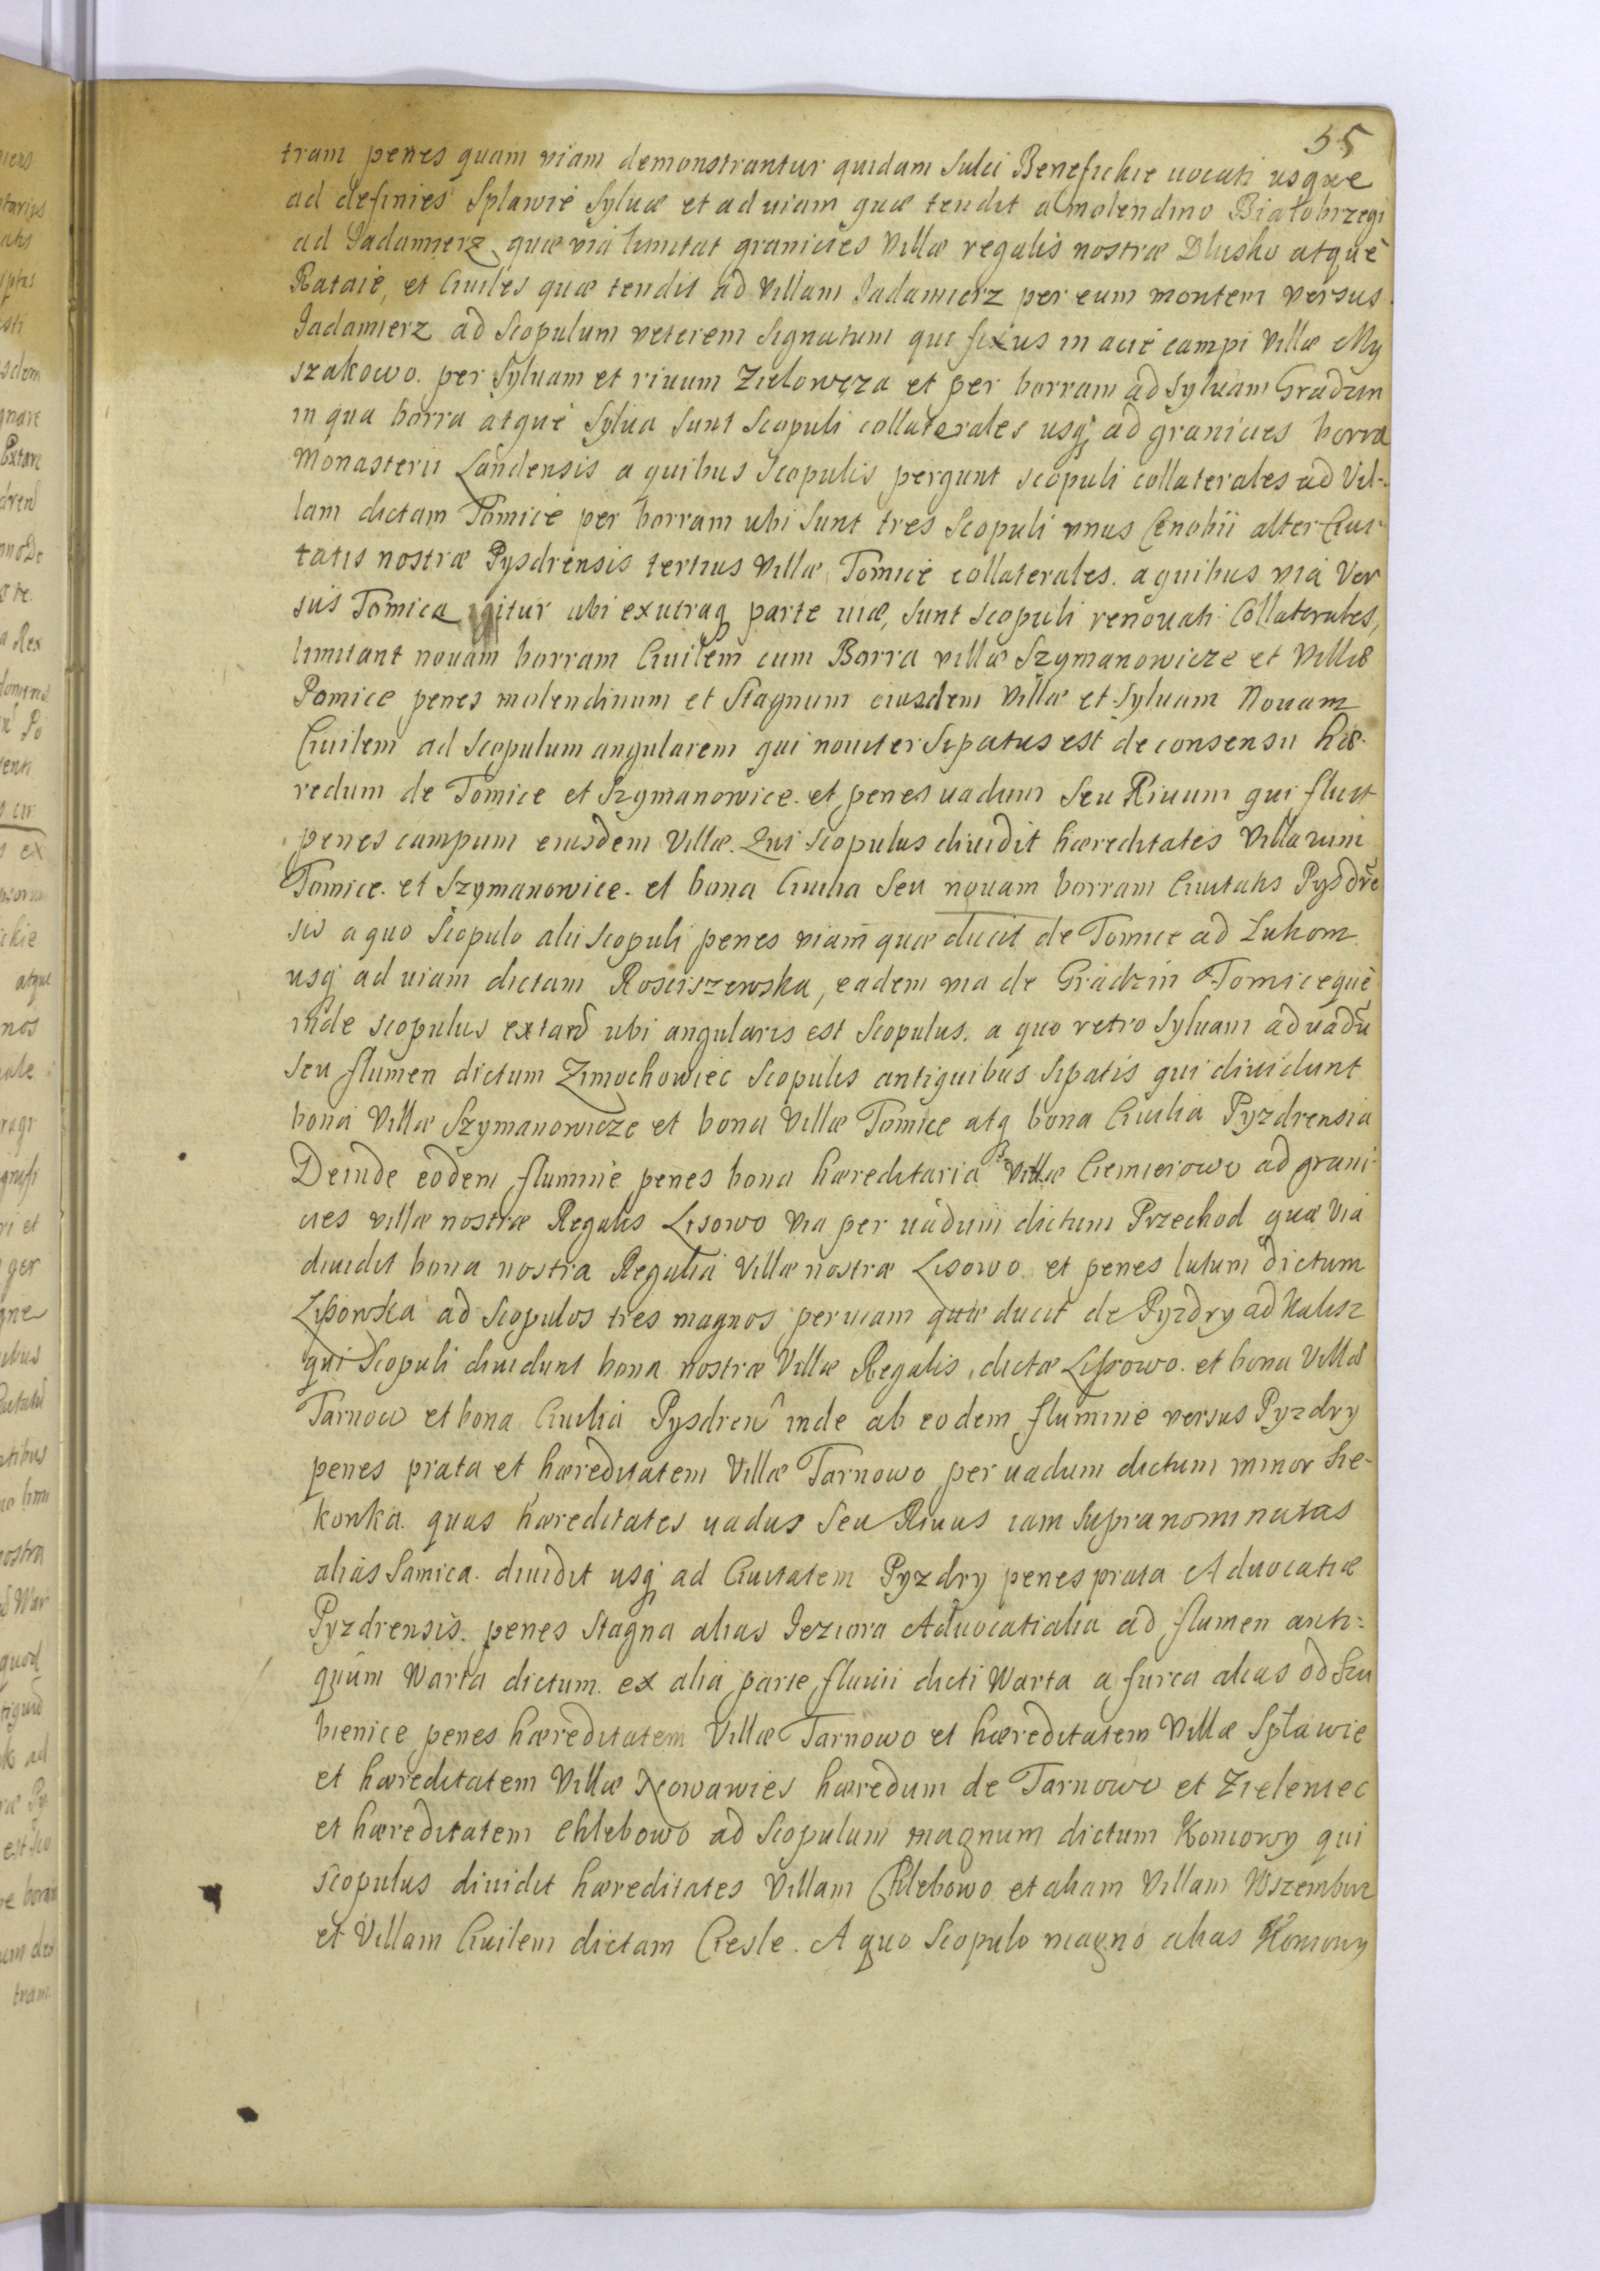 55
tram penes quam viam demonstrantur quidam Sulci Benefickie uocati usque
ad definies Splawie Syluæ et ad uiam quæ tendit a molendino Białobrzegi
ad Jadamierz quæ via limitat granicies Villæ regalis nostræ Dlusko atque
Rataie, et Ciuiles quæ tendit ad Villam Jadamierz per eum montem versus
Jadamierz ad Scopulum veterem Signatum qui fixus in acie campi Villæ My
szakowo. per Syluam et riuum Zielowęza et per borram ad Syluam Gradzin
in qua borra atque Sylua Sunt Scopuli collaterales usq; ad granicies borra
Monasterii Landensis a quibus Scopulis pergunt scopuli collaterales ad Vil-
lam dictam Tomice per borram ubi Sunt tres Scopuli vnus Cenobii alter Ciui-
tatis nostræ Pysdrensis tertius Villæ Tomice collaterales. a quibus via Ver
sus Tomica itur ubi ex utraq parte uiæ, Sunt scopuli renouati Collaterales,
limitant nouam borram Ciuilem cum Borra villæ Szymanowicze et Villæ
Pomice penes molendinum et Stagnum eiusdem Villæ et Syluam Nouam
Ciuilem ad Scopulum angularem qui nouiter Sipatus est de consensu hæ-
redum de Tomice et Szymanowice. et penes uadum Seu Riuum qui fluit
penes campum eiusdem Villæ. Qui Scopulus diuidit hæreditates Villarum
Tomice. et Szymanowice. et bona Ciuilia Seu nouam borram Ciuitatis Pysdrē
sis a quo Scopulo alii Scopuli penes viam quæ ducit de Tomice ad Lukom
usq ad uiam dictam Rosciszewska, eadem via de Gradzin Tomiceque
inde scopulus extanđ ubi angularis est Scopulus. a quo retro Syluam ad uadū
Seu flumen dictum Zimochowiec Scopulis antiquibus Sipatis qui diuidunt
bona Villæ Szymanowicze et bona Villæ Tomice atq bona Ciuilia Pyzdrensia
Deinde eodem flumine penes bona hæreditaria Villæ Ciemierowo ad grani-
cies villæ nostræ Regalis Lisowo via per uadum dictum Przechod quæ via
diuidit bona nostra Regalia Villæ nostræ Lisowo et penes lutum dictum
Lissowska ad Scopulos tres magnos per uiam quæ ducit de Pyzdry ad Kalisz
qui Scopuli diuidunt bona nostræ Villæ Regalis, dictæ Lissowo. et bona Villæ
Tarnow et bona Ciuilia Pysdren̂ inde ab eodem flumine versus Pyzdry
penes prata et hæreditatem Villæ Tarnowo per uadum dictum minor Sie-
konka. quas hæreditates uadus Seu Riuus iam Supra nominatas
alias Samica. diuidit usq ad Ciuitatem Pyzdry penes prata Aduocatiæ
Pyzdrensis. penes Stagna alias Jeziora Aduocatialia ad flumen anti=
quum Warta dictum. ex alia parte fluuii dicti Warta a furca alias od Szu
bienice penes hæreditatem Villæ Tarnowo et hæreditatem Villæ Spławie
et hæreditatem Villæ Nowawies hæredum de Tarnowo et Zieleniec
et hæreditatem Chlebowo ad Scopulum magnum dictum Komorny qui
Scopulus diuidit hæreditates Villam Chlebowo et aliam Villam Wszembor
et Villam Ciuilem dictam Ciesle. A quo Scopulo magno alias